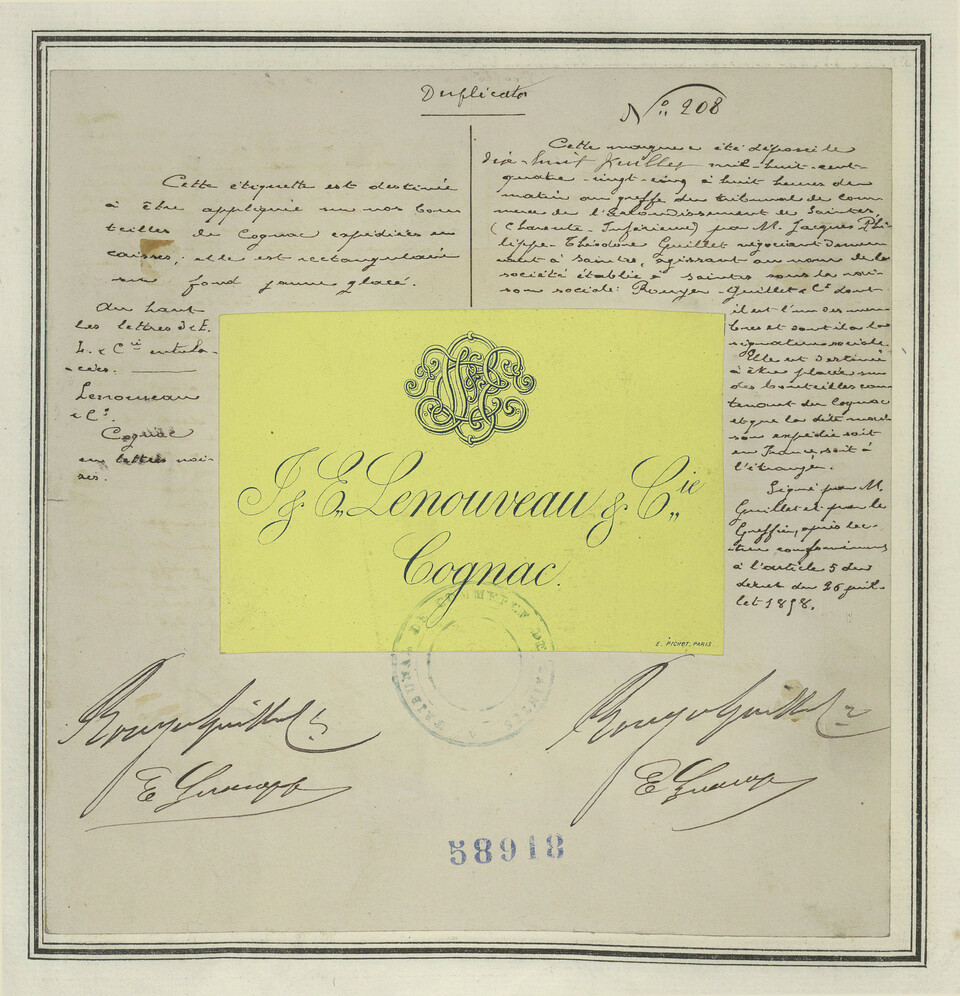 Duplicata
N° 208
Cette étiquette est destinée
à être appliquée sur nos bou
teilles de Cognac expédiées en
caisses; elle est rectangulaire
sur fond jaune glacé.
Au haut
les lettres J & E.
L. & Cie entrela-
-cées.
Lenouveau
& Cie.
Cognac
en lettres noi-
res.
Cette marque a été déposée le
dix-huit Juillet mil-huit-cent-
quatre-vingt-cinq à huit heures du
matin au greffe du tribunal de com
merce de l'arrondissement de Saintes,
(Charente-Inférieure) par M. Jacques Phi
lippe-Théodore Guillet négociant demeu
rant à Saintes, agissant au nom de la
société établie à Saintes sous la rai-
son sociale: Rouyer-Guillet & Cie dont
il est l'un des mem
bres et dont il a la
signature sociale.
Elle est destinée
à être placée sur
des bouteilles con
tenant du Cognac
et que la dite mai-
son expédie soit
en France soit à
l'étranger.
Signé par M.
Guillet et par le
Greffier, après lec-
ture conformément
à l'article 5 du
décret du 26 juil-
let 1858.
J. & E. Lenouveau & Cie
Cognac.
E. PICHOT. PARIS.
TRIBUNAL DE COMMERCE DE SAINTES
Rouyer Guillet &
Rouyer Guillet &
58918